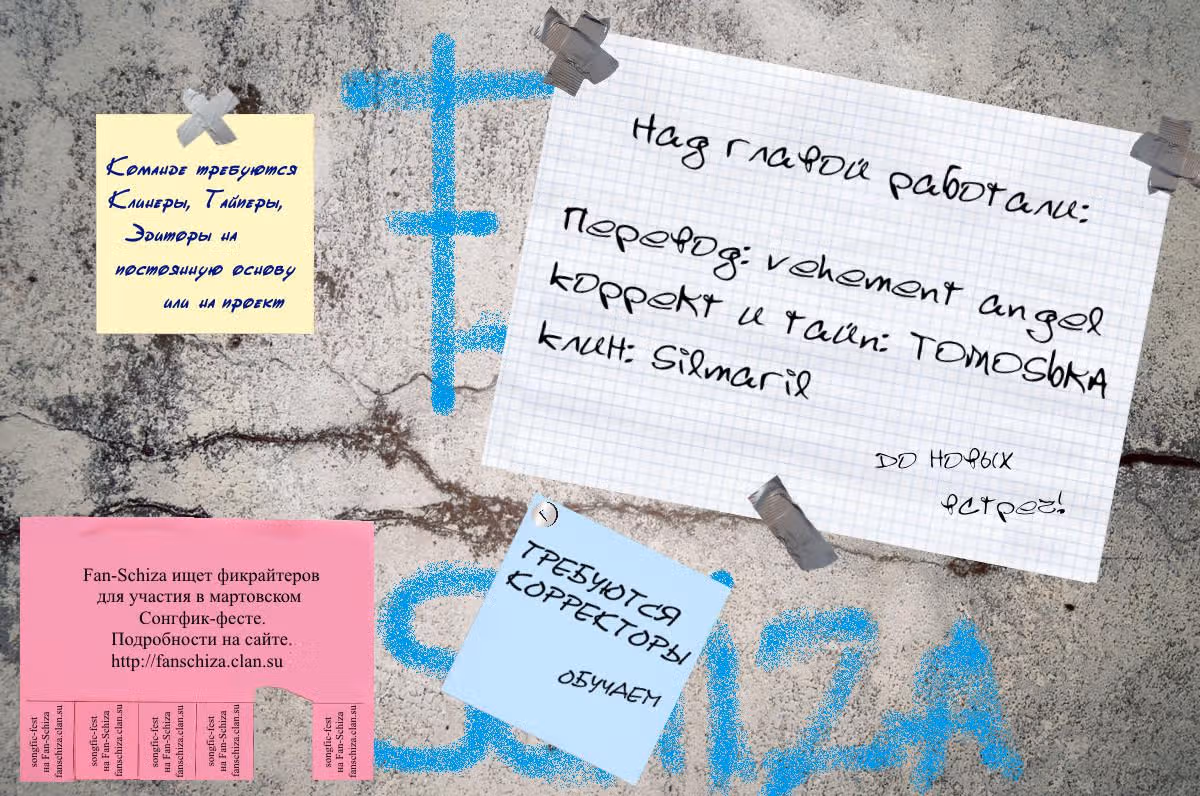 Команде требуются
Клинеры, Тайперы,
Эдиторы на
постоянную основу
или на проект
Над главой работали:
Перевод: vehement angel
коррект и тайп: TOMOSbKA
клин: Silmaril
до новых
встреч!
ТРЕБУЮТСЯ
КОРРЕКТОРЫ
ОБУЧАЕМ
Fan-Schiza ищет фикрайтеров
для участия в мартовском
Сонгфик-фесте.
Подробности на сайте.
http://fanschiza.clan.su
songfic-fest
на Fan-Schiza
fanschiza.clan.su
songfic-fest
на Fan-Schiza
fanschiza.clan.su
songfic-fest
на Fan-Schiza
fanschiza.clan.su
songfic-fest
на Fan-Schiza
fanschiza.clan.su
songfic-fest
на Fan-Schiza
fanschiza.clan.su